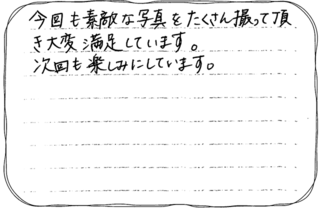 今回も素敵な写真をたくさん撮って頂
き大変満足しています。
次回も楽しみにしています。